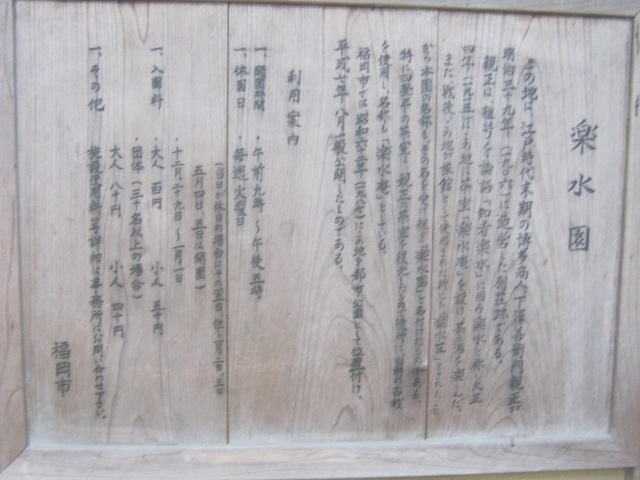 楽水園
この地は、江戸時代末期の博多商人「下澤善右衛門親正」が
明治三十九年(一九〇六)に造営した別荘跡である。
親正は、雅号を論語「知者楽水」に因み楽水と称し、大正
四年(一九一五)にこの地に茶室「楽水庵」を設け茶の湯を楽しんだ。
また、戦後、この地が旅館として使用された時にも「楽水荘」とされたこと
から本園の名称も、その名を受け継ぎ「楽水園」と名付けたものである。
特に四畳半の茶室は、親正の茶室を復元したもの
を使用し、名称も「楽水庵」としている。
福岡市では昭和六十二年(一九八七)にこの地を都市公園として位置付け、
平成七年八月一般公開したものである。
利用案内
一、開園時間 ・午前九時〜午後五時
一、休園日 ・毎週火曜日
(当日が休日の場合はその翌日、但し一月二日、三日
五月四日、五日は開園)
・十二月二十九日〜一月一日
一、入園料 ・大人 百円 小人 五十円
・団体(三十名以上の場合)
大人 八十円 小人 四十円
一、その他 施設使用料等詳細は事務所にお問い合わせ下さい。
福岡市